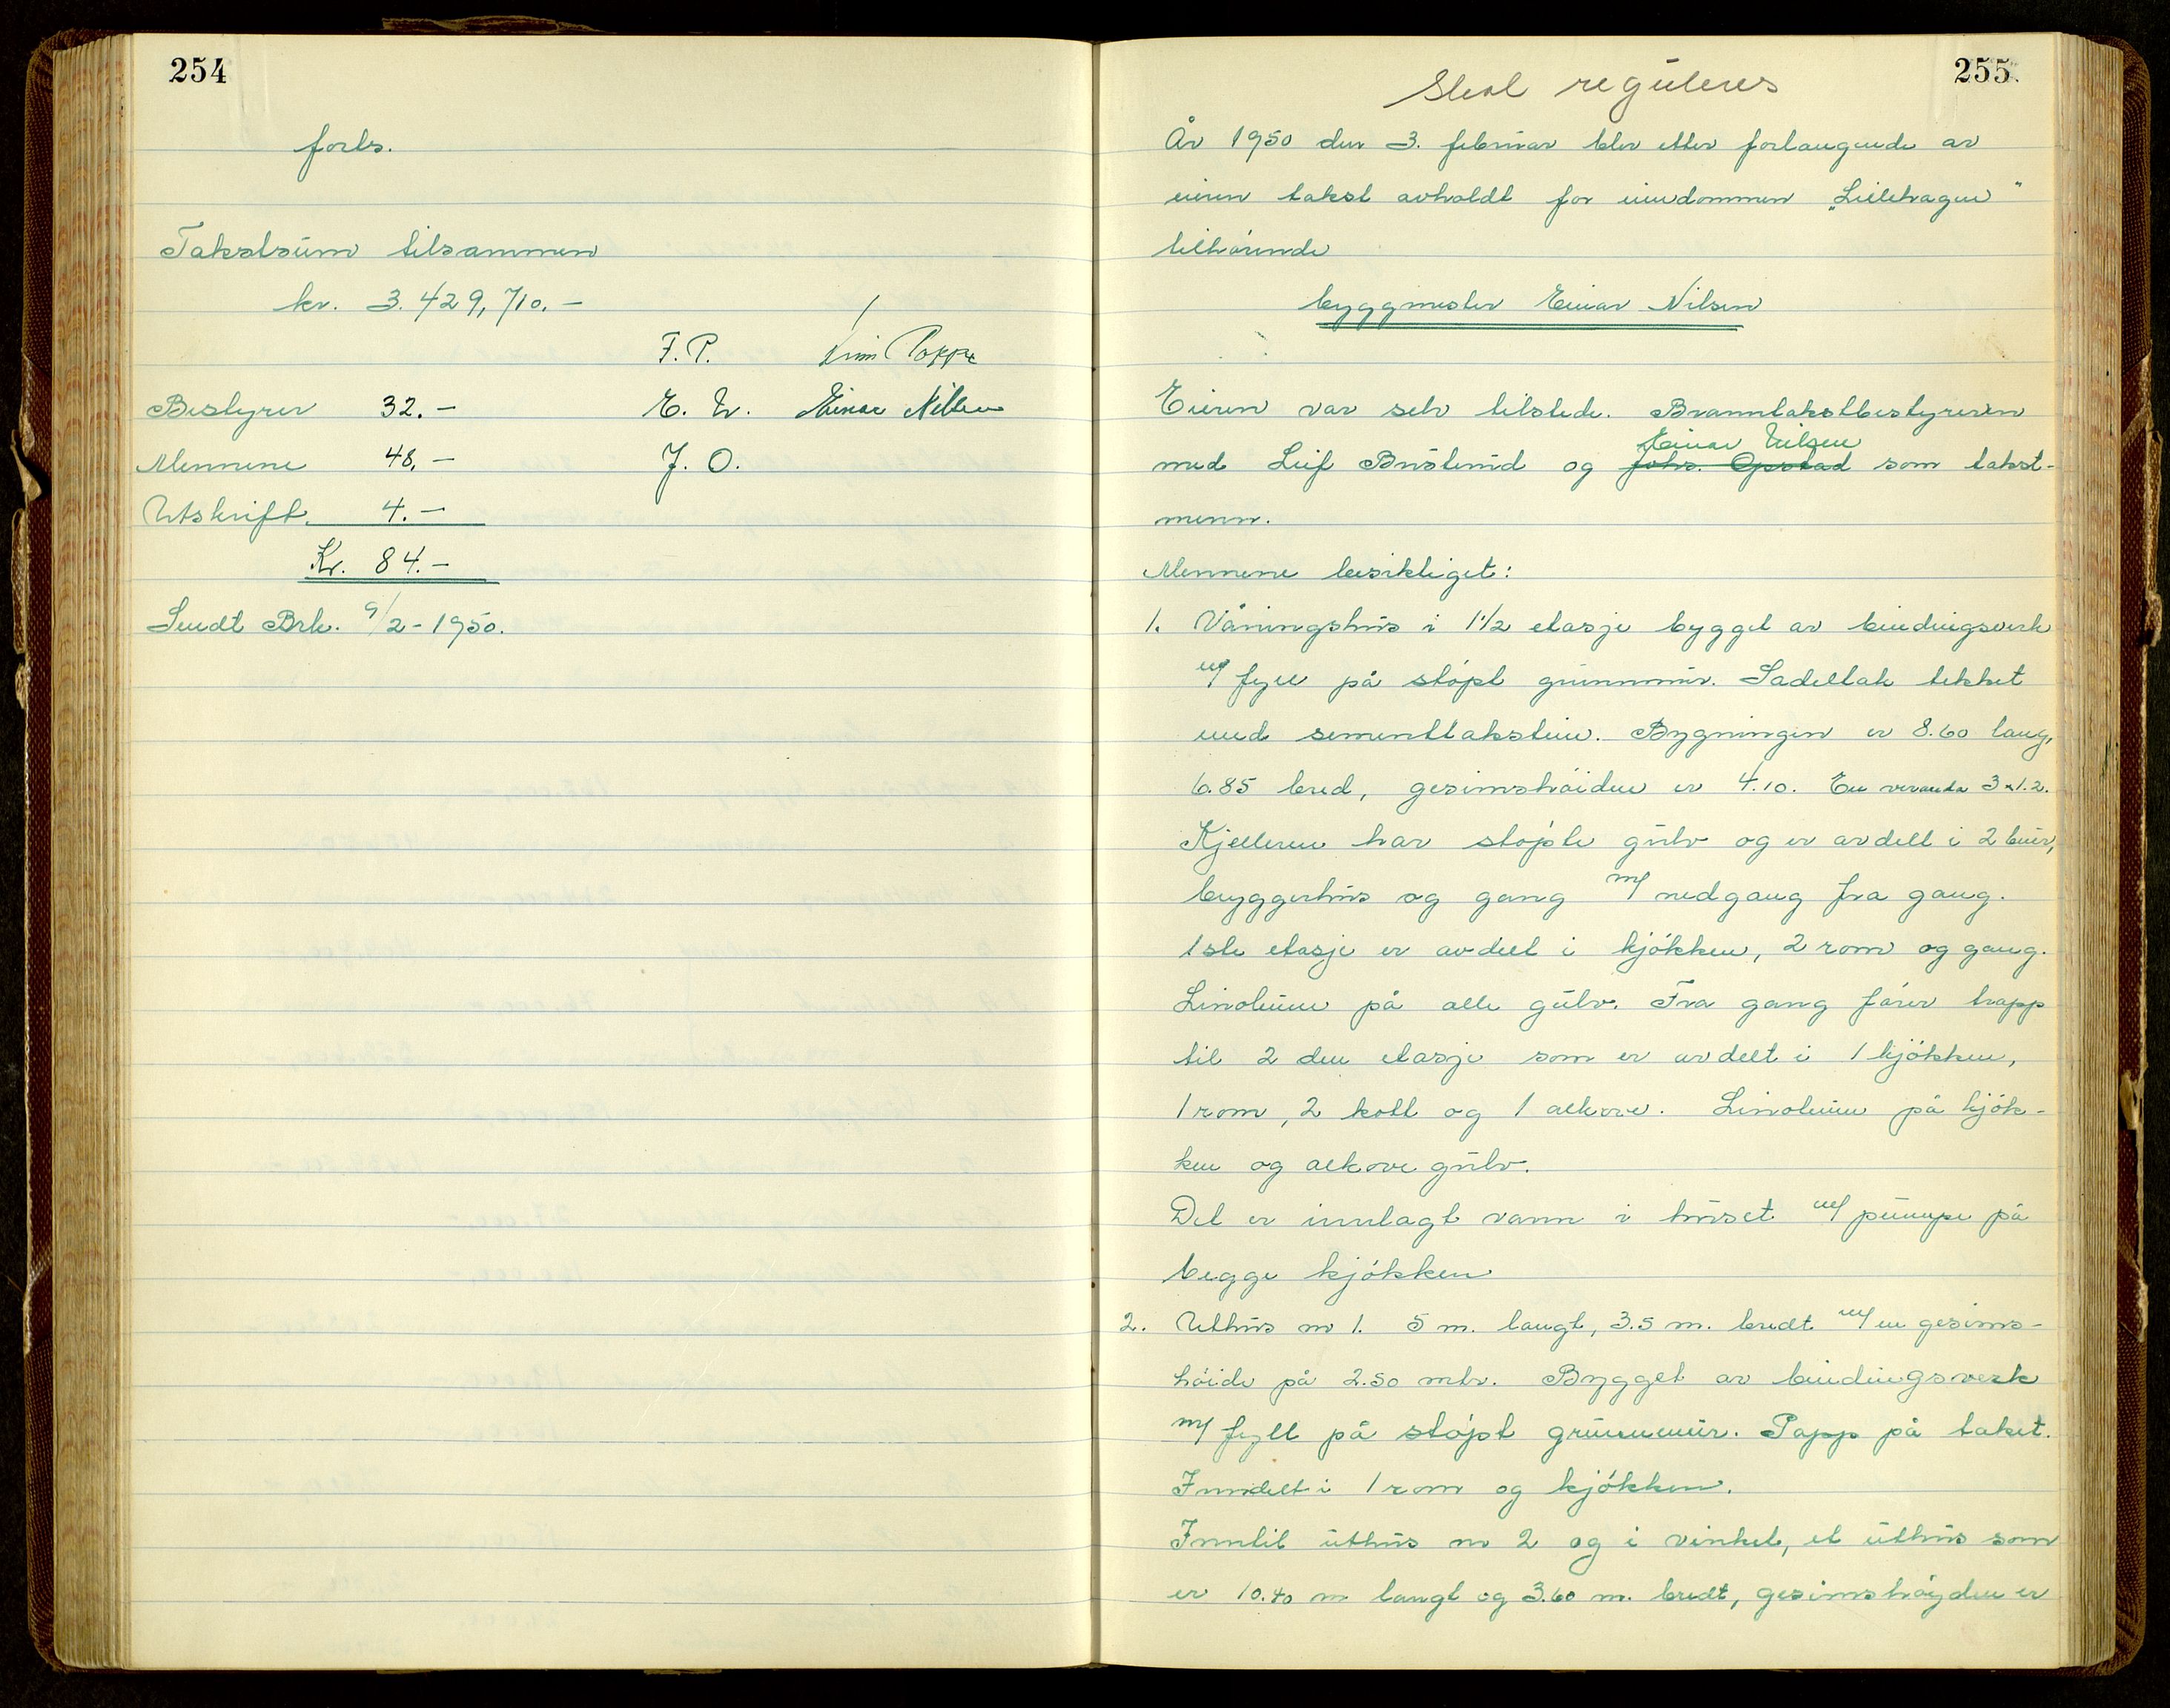 254
forts.
Takstsum tilsammen
kr. 3.429,710.-
F. P. Poppe
Bestyrer 32.- E. N. Einar Nilsen
Mennene 48,- J. O.
Utskrift. 4.-
Kr. 84.-
Sendt Brk. 9/2-1950.
255.
Skal reguleres
År 1950 den 3. februar blev etter forlangende av
eieren takst avholdt for eiendommen „Lillehagen"
tilhörende
byggmester Einar Nilsen
Eieren var selv tilstede. Branntakstbestyreren
Einar Nilsen
med Leif Buslerud og Johs. Opstad som takst-
menn.
Mennene besiktiget:
1. Våningshus i 1 1/2 etasje bygget av bindingsverk
m/ fyll på stöpt grunnmur. Sadeltak tekket
med sementtakstein. Bygningen er 8.60 lang,
6.85 bred, gesimshöiden er 4.10. En veranda 3 x 1.2.
Kjelleren har stöpte gulv og er avdelt i 2 buer,
bryggerhus og gang m/ nedgang fra gang.
1ste etasje er avdelt i kjökken, 2 rom og gang.
Linoleum på alle gulv. Fra gang förer trapp
til 2 den etasje som er avdelt i 1 kjökken,
1 rom, 2 kott og 1 alkove. Linoleum på kjök-
ken og alkove gulv.
Det er innlagt vann i huset m/ pumpe på
begge kjökken
2. Uthus nr 1. 5 m. langt, 3.5 m. bredt m/ en gesims-
höide på 2.50 mtr. Bygget av bindingsverk
m/ fyll på stöpt grunnmur. Papp på taket.
Inndelt i 1 rom og kjökken.
Inntil uthus nr 2 og i vinkel, et uthus som
er 10.40 m langt og 3.60 m. bredt, gesimshöyden er